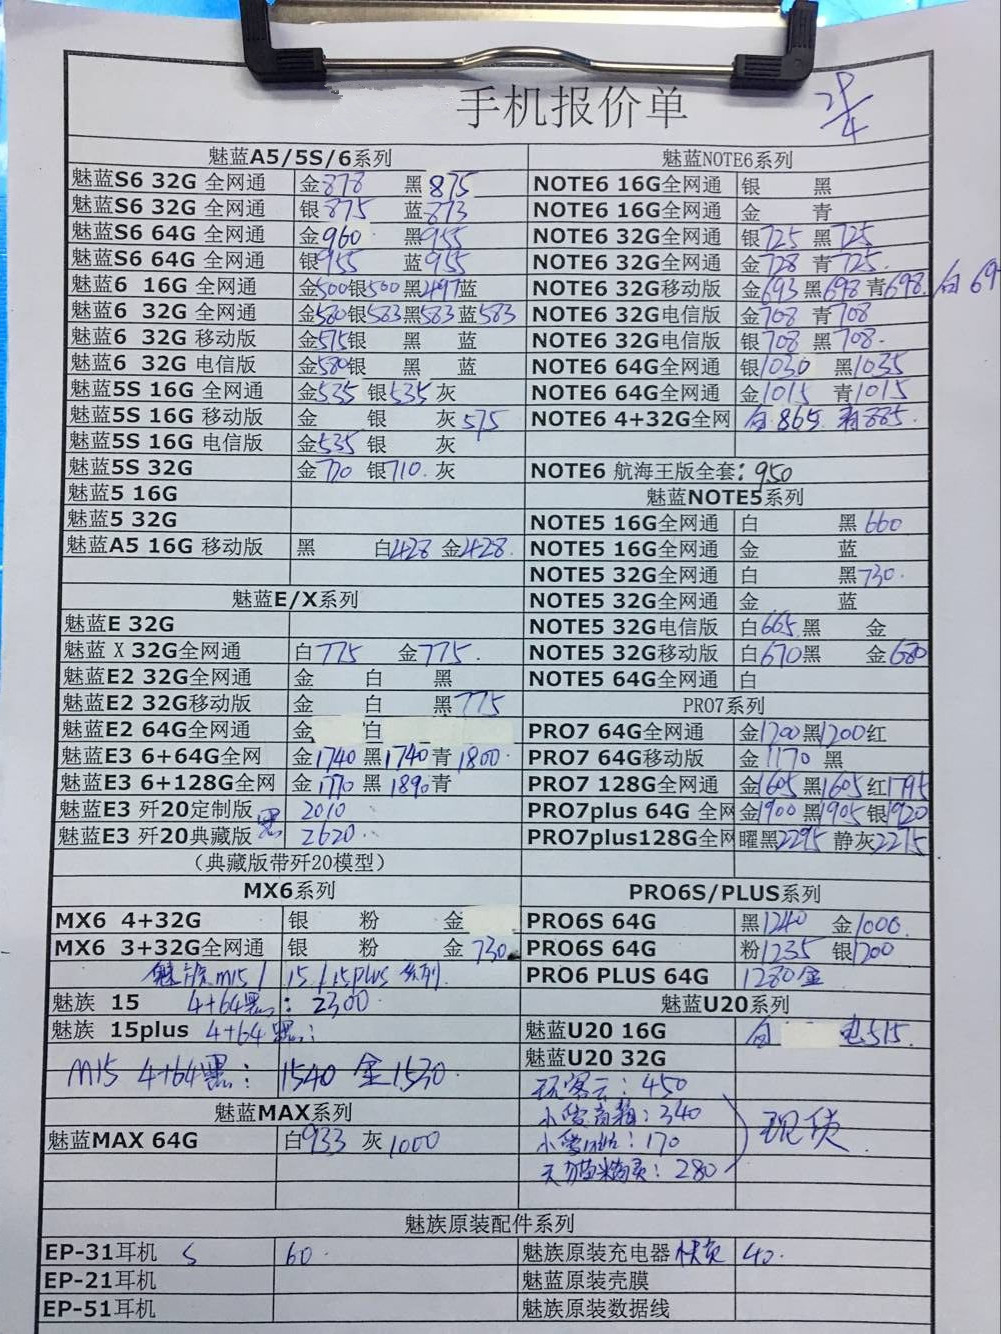 手机报价单
29/4
魅蓝A5/5S/6系列
魅蓝S6 32G 全网通 金878 黑875
魅蓝S6 32G 全网通 银875 蓝873
魅蓝S6 64G 全网通 金960 黑955
魅蓝S6 64G 全网通 银955 蓝955
魅蓝6 16G 全网通 金500银500黑497蓝
魅蓝6 32G 全网通 金580银583黑583蓝583
魅蓝6 32G 移动版 金575银 黑 蓝
魅蓝6 32G 电信版 金580银 黑 蓝
魅蓝5S 16G 全网通 金535 银535 灰
魅蓝5S 16G 移动版 金 银 灰575
魅蓝5S 16G 电信版 金535 银 灰
魅蓝5S 32G 金770 银710. 灰
魅蓝5 16G
魅蓝5 32G
魅蓝A5 16G 移动版 黑 白428 金428.
魅蓝E/X系列
魅蓝E 32G
魅蓝X 32G全网通 白775 金775.
魅蓝E2 32G全网通 金 白 黑
魅蓝E2 32G移动版 金 白 黑775
魅蓝E2 64G全网通 金 白
魅蓝E3 6+64G全网 金1740 黑1740 青1800.
魅蓝E3 6+128G全网 金1770 黑1890青
魅蓝E3 歼20定制版 黑 2010
魅蓝E3 歼20典藏版 2620.
（典藏版带歼20模型）
MX6系列
MX6 4+32G 银 粉 金
MX6 3+32G全网通 银 粉 金730.
魅族m15/15/15plus 系列
魅族 15 4+64黑: 2300.
魅族 15plus 4+64黑:
M15 4+64黑: 1540 金1530.
魅蓝MAX系列
魅蓝MAX 64G 白933 灰1000
魅蓝NOTE6系列
NOTE6 16G全网通 银 黑
NOTE6 16G全网通 金 青
NOTE6 32G全网通 银725 黑725
NOTE6 32G全网通 金728 青725.
NOTE6 32G移动版 金693 黑698 青698. 白69
NOTE6 32G电信版 金708 青708
NOTE6 32G电信版 银708 黑708.
NOTE6 64G全网通 银1030 黑1035
NOTE6 64G全网通 金1015 青1015
NOTE6 4+32G全网 白.865. 青885.
NOTE6 航海王版全套：950
魅蓝NOTE5系列
NOTE5 16G全网通 白 黑660
NOTE5 16G全网通 金 蓝
NOTE5 32G全网通 白 黑730.
NOTE5 32G全网通 金 蓝
NOTE5 32G电信版 白665.黑 金
NOTE5 32G移动版 白670黑 金680
NOTE5 64G全网通 白
PRO7系列
PRO7 64G全网通 金1200黑1200红
PRO7 64G移动版 金1170 黑
PRO7 128G全网通 金1605 黑1605 红1795
PRO7plus 64G 全网 金1900黑1905银1920
PRO7plus128G全网 曜黑2295 静灰2275
PRO6S/PLUS系列
PRO6S 64G 黑1240 金1000.
PRO6S 64G 粉1235 银1200
PRO6 PLUS 64G 1280金
魅蓝U20系列
魅蓝U20 16G 白 电515.
魅蓝U20 32G
玩客云: 450
小雪音箱: 340
: 170
天猫精灵: 280
现货
魅族原装配件系列
EP-31耳机 S 60.
EP-21耳机
EP-51耳机
魅族原装充电器 快充 40.
魅蓝原装壳膜
魅族原装数据线